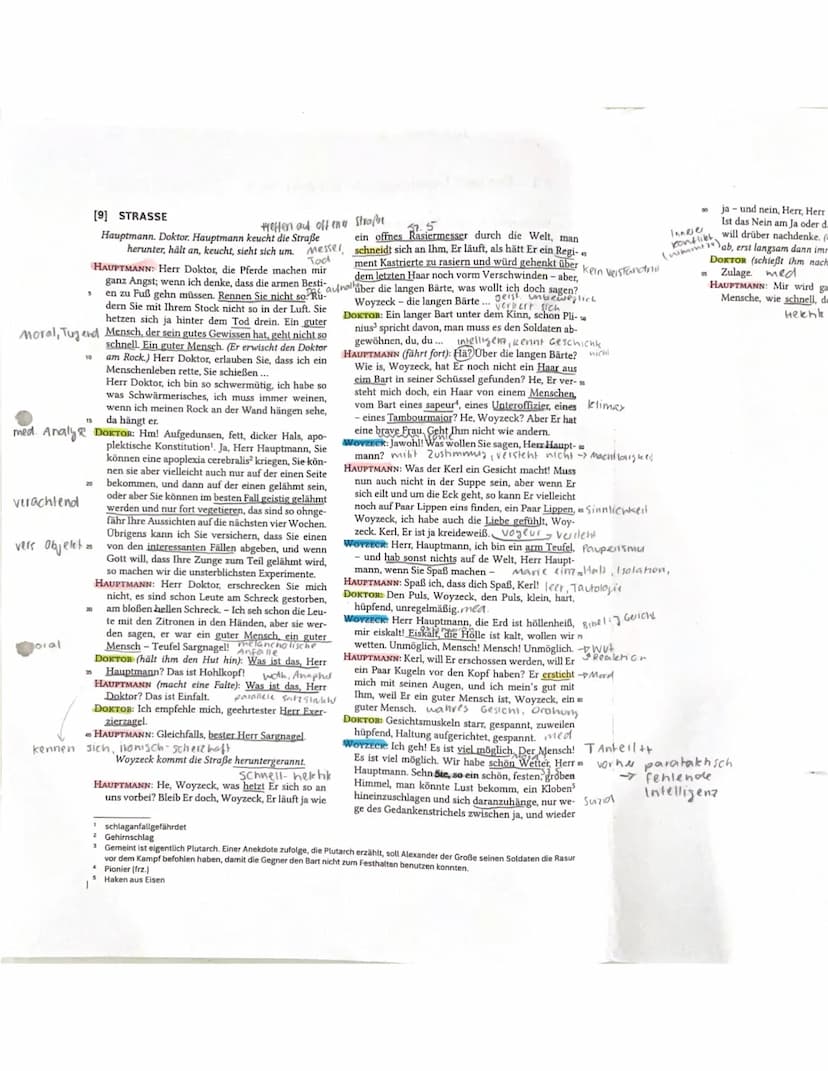 [9] STRASSE
treffen auf offener Straße
Hauptmann. Doktor. Hauptmann keucht die Straße
herunter, hält an, keucht, sieht sich um.
HAUPTMANN: Herr Doktor, die Pferde machen mir
ganz Angst; wenn ich denke, dass die armen Besti-
5 en zu Fuß gehn müssen. Rennen Sie nicht so. Ru-
dern Sie mit Ihrem Stock nicht so in der Luft. Sie
hetzen sich ja hinter dem Tod drein. Ein guter
Moral, Tugend
Mensch, der sein gutes Gewissen hat, geht nicht so
schnell. Ein guter Mensch. (Er erwischt den Doktor
10 am Rock.) Herr Doktor, erlauben Sie, dass ich ein
Menschenleben rette, Sie schießen ...
Herr Doktor, ich bin so schwermütig, ich habe so
was Schwärmerisches, ich muss immer weinen,
wenn ich meinen Rock an der Wand hängen sehe,
15 da hängt er.
med. Analyse
DOKTOR: Hm! Aufgedunsen, fett, dicker Hals, apo-
plektische Konstitution¹. Ja, Herr Hauptmann, Sie
können eine apoplexia cerebralis² kriegen, Sie kön-
nen sie aber vielleicht auch nur auf der einen Seite
20 bekommen, und dann auf der einen gelähmt sein,
verachtend
oder aber Sie können im besten Fall geistig gelähmt
werden und nur fort vegetieren, das sind so ohnge-
fähr Ihre Aussichten auf die nächsten vier Wochen.
Übrigens kann ich Sie versichern, dass Sie einen
vers Objekt
25 von den interessanten Fällen abgeben, und wenn
Gott will, dass Ihre Zunge zum Teil gelähmt wird,
so machen wir die unsterblichsten Experimente.
HAUPTMANN: Herr Doktor, erschrecken Sie mich
nicht, es sind schon Leute am Schreck gestorben,
30 am bloßen hellen Schreck. – Ich seh schon die Leu-
te mit den Zitronen in den Händen, aber sie wer-
den sagen, er war ein guter Mensch, ein guter
Mensch – Teufel Sargnagel!
melancholische
Anfälle
DOKTOR (hält ihm den Hut hin): Was ist das, Herr
35 Hauptmann? Das ist Hohlkopf!
HAUPTMANN (macht eine Falte): Was ist das, Herr
Doktor? Das ist Einfalt.
parallele Satzstruktur
DOKTOR: Ich empfehle mich, geehrtester Herr Exer-
zierzagel.
40 HAUPTMANN: Gleichfalls, bester Herr Sargnagel.
kennen sich, ironisch-scherzhaft
Woyzeck kommt die Straße heruntergerannt.
schnell-hektik
HAUPTMANN: He, Woyzeck, was hetzt Er sich so an
uns vorbei? Bleib Er doch, Woyzeck, Er läuft ja wie
Sz. 5
Messer,
Tod
ein offnes Rasiermesser durch die Welt, man
schneidt sich an Ihm, Er läuft, als hätt Er ein Regi- 45
ment Kastrierte zu rasiern und würd gehenkt über
dem letzten Haar noch vorm Verschwinden – aber,
kein Verständnis
über die langen Bärte, was wollt ich doch sagen?
Woyzeck – die langen Bärte ...
geist. unbeweglich
verliert sich
DOKTOR: Ein langer Bart unter dem Kinn, schon Pli- 50
nius³ spricht davon, man muss es den Soldaten ab-
gewöhnen, du, du ...
intelligent, kennt Geschichte
HAUPTMANN (fährt fort): Hä? Über die langen Bärte?
Wie is, Woyzeck, hat Er noch nicht ein Haar aus
eim Bart in seiner Schüssel gefunden? He, Er ver- 55
steht mich doch, ein Haar von einem Menschen,
vom Bart eines sapeur⁴, eines Unteroffizier, eines
Klimax
– eines Tambourmajor? He, Woyzeck? Aber Er hat
eine brave Frau. Geht Ihm nicht wie andern.
Ironie
WOYZECK: Jawohl! Was wollen Sie sagen, Herr Haupt- 60
mann?
gibt Zustimmung, versteht nicht → Machtlosigkeit
HAUPTMANN: Was der Kerl ein Gesicht macht! Muss
nun auch nicht in der Suppe sein, aber wenn Er
sich eilt und um die Eck geht, so kann Er vielleicht
noch auf Paar Lippen eins finden, ein Paar Lippen, 65
Sinnlichkeit
Woyzeck, ich habe auch die Liebe gefühlt, Woy-
zeck. Kerl, Er ist ja kreideweiß.
Voyeur → verliebt
WOYZECK: Herr, Hauptmann, ich bin ein arm Teufel,
Pauperismus
– und hab sonst nichts auf de Welt, Herr Haupt-
mann, wenn Sie Spaß machen –
Marie einz. Halt, Isolation,
HAUPTMANN: Spaß ich, dass dich Spaß, Kerl!
leer, Tautologie
DOKTOR: Den Puls, Woyzeck, den Puls, klein, hart,
hüpfend, unregelmäßig.
med.
WOYZECK: Herr Hauptmann, die Erd ist höllenheiß,
mir eiskalt! Eiskalt, die Hölle ist kalt, wollen wir
wetten. Unmöglich, Mensch! Mensch! Unmöglich.
→ Wut
HAUPTMANN: Kerl, will Er erschossen werden, will Er
Reaktion
ein Paar Kugeln vor den Kopf haben? Er ersticht
→ Mord
mich mit seinen Augen, und ich mein's gut mit
Ihm, weil Er ein guter Mensch ist, Woyzeck, ein 80
guter Mensch.
wahres Gesicht, Drohung
DOKTOR: Gesichtsmuskeln starr, gespannt, zuweilen
hüpfend, Haltung aufgerichtet, gespannt.
med
WOYZECK: Ich geh! Es ist viel möglich. Der Mensch!
Es ist viel möglich. Wir habe schön Wetter, Herr 85
Hauptmann. Sehn Sie, so ein schön, festen, groben
Himmel, man könnte Lust bekomm, ein Kloben⁵
hineinzuschlagen und sich daranzuhänge, nur we-
Suizid
ge des Gedankenstrichels zwischen ja, und wieder
↑ Anteil ++
vorher parataktisch
→ fehlende
Intelligenz
90 ja – und nein, Herr, Herr
Ist das Nein am Ja oder d
will drüber nachdenke.
Innerer
Konflikt
ab, erst langsam dann imm
DOKTOR (schießt ihm nach
95 Zulage.
med
HAUPTMANN: Mir wird ga
Mensche, wie schnell, d
Hektik
¹ schlaganfallgefährdet
² Gehirnschlag
³ Gemeint ist eigentlich Plutarch. Einer Anekdote zufolge, die Plutarch erzählt, soll Alexander der Große seinen Soldaten die Rasur
vor dem Kampf befohlen haben, damit die Gegner den Bart nicht zum Festhalten benutzen konnten.
⁴ Pionier (frz.)
⁵ Haken aus Eisen